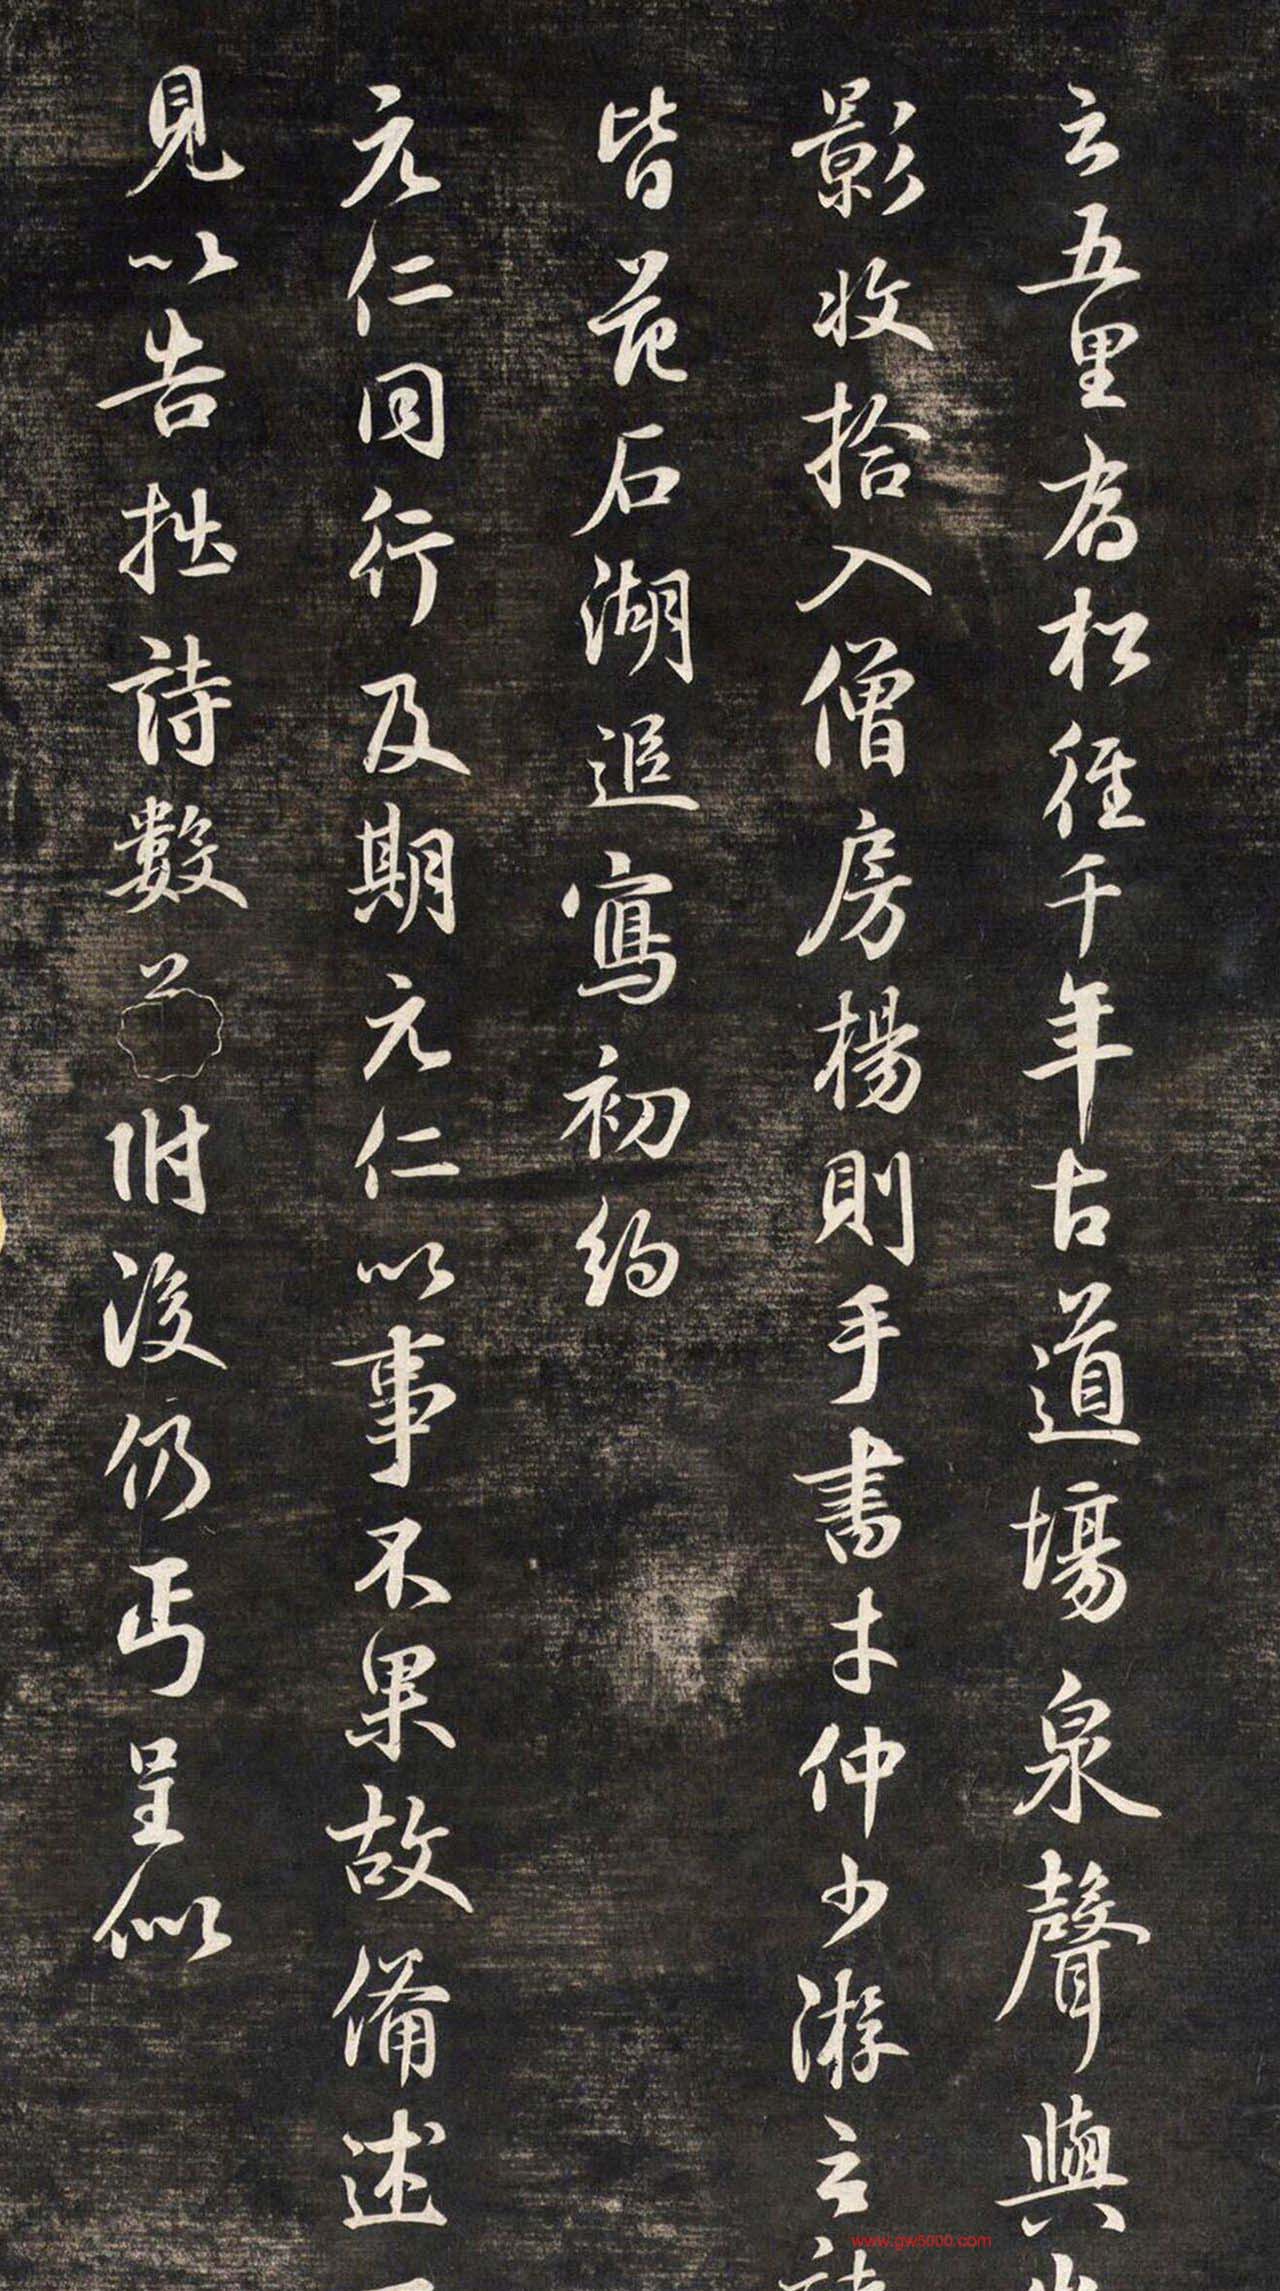 云五里為松徑千年古道場泉聲與山
影收拾入僧房楊則手書才仲少游云詩
皆范石湖追寫初約
元仁同行及期元仁以事不果故備述一
見以告拙詩數
附後仍丐呈似
www.gw5000.com